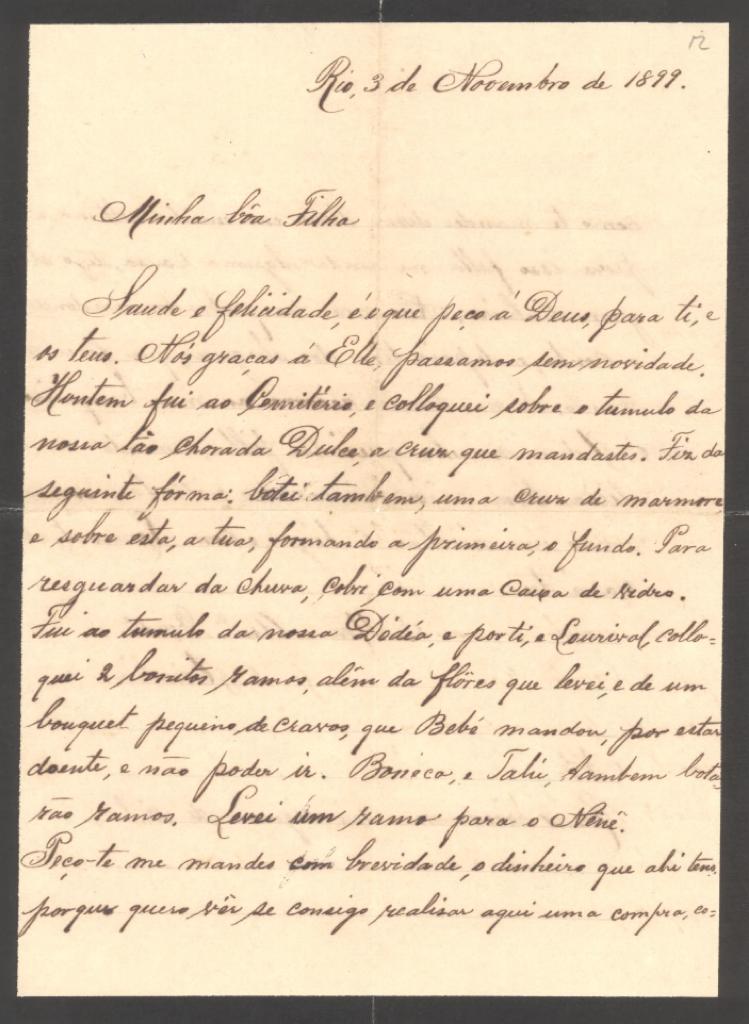 12
Rio, 3 de Novembro de 1899.
Minha bôa Filha
Saude e felicidade, é o que peço á Deus, para ti, e
os teus. Nós graças á Elle, passamos sem novidade.
Hontem fui ao Cemitério, e colloquei sobre o tumulo da
nossa tão chorada Dulce, a cruz que mandastes. Fiz da
seguinte fórma: botei tambem, uma cruz de marmore,
e sobre esta, a tua, formando a primeira, o fundo. Para
resguardar da chuva, cobri com uma caixa de vidro.
Fui ao tumulo da nossa Dédéa, e por ti, e Lourival, collo=
quei 2 bonitos ramos, além da flôres que levei, e de um
bouquet pequeno, de cravos, que Bebé mandou, por estar
doente, e não poder ir. Bonéca, e Talú, tambem bota=
rão ramos. Levei um ramo para o Nênê.
Peço-te me mandes com brevidade, o dinheiro que ahi tens,
porque quero vêr se consigo realisar aqui uma compra, co=